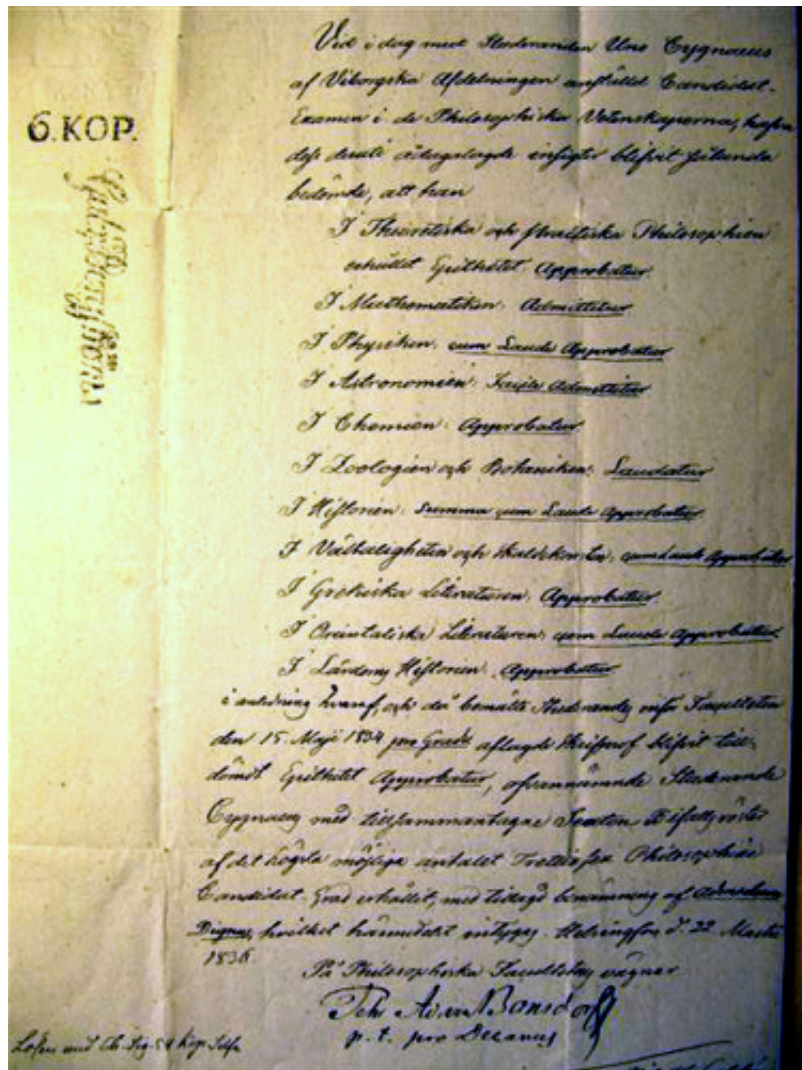 Vid i dag med Studeranden Uno Cygnaeus
af Viborgska Afdelningen anstäldt Candidat-
Examen i de Philosophiska Vetenskaperna, hafva
dess dervid ådagalagde insigter blifvit sålunda
bedömde, att han
6.KOP.
I Theoretiska och Practiska Philosophien
erhållit Vitsordet Approbatur.
I Mathematiken: Admittitur
I Physiken: cum Laude Approbatur
I Astronomien: Admittitur
I Chemien: Approbatur
I Zoologien och Botaniken: Laudatur
I Historien: Summa cum Laude Approbatur
I Vältaligheten och Skaldekonsten: cum Laude Approbatur
I Grekiska Literaturen: Approbatur
I Orientaliska Literaturen: cum Laude Approbatur.
I Lärdoms Historien: Approbatur
i anledning hvaraf, och då bemälte Studerandes inför Faculteten
den 15 Maji 1834 pro Gradu aflagde blifvit till-
dömdt Approbatur, ofvannämnde Studerande
Cygnaeus med tillsammantagne röster
af det högsta möjliga antalet Philosophiae
Candidat-Grad erhållit, med tillagd benämning af
Dignus, hvilket härmedelst intygas. Helsingfors d. 22 Martii
1836.
På Philosophiska Facultetens vägnar
Bonsdorff
p. t. pro Decanus